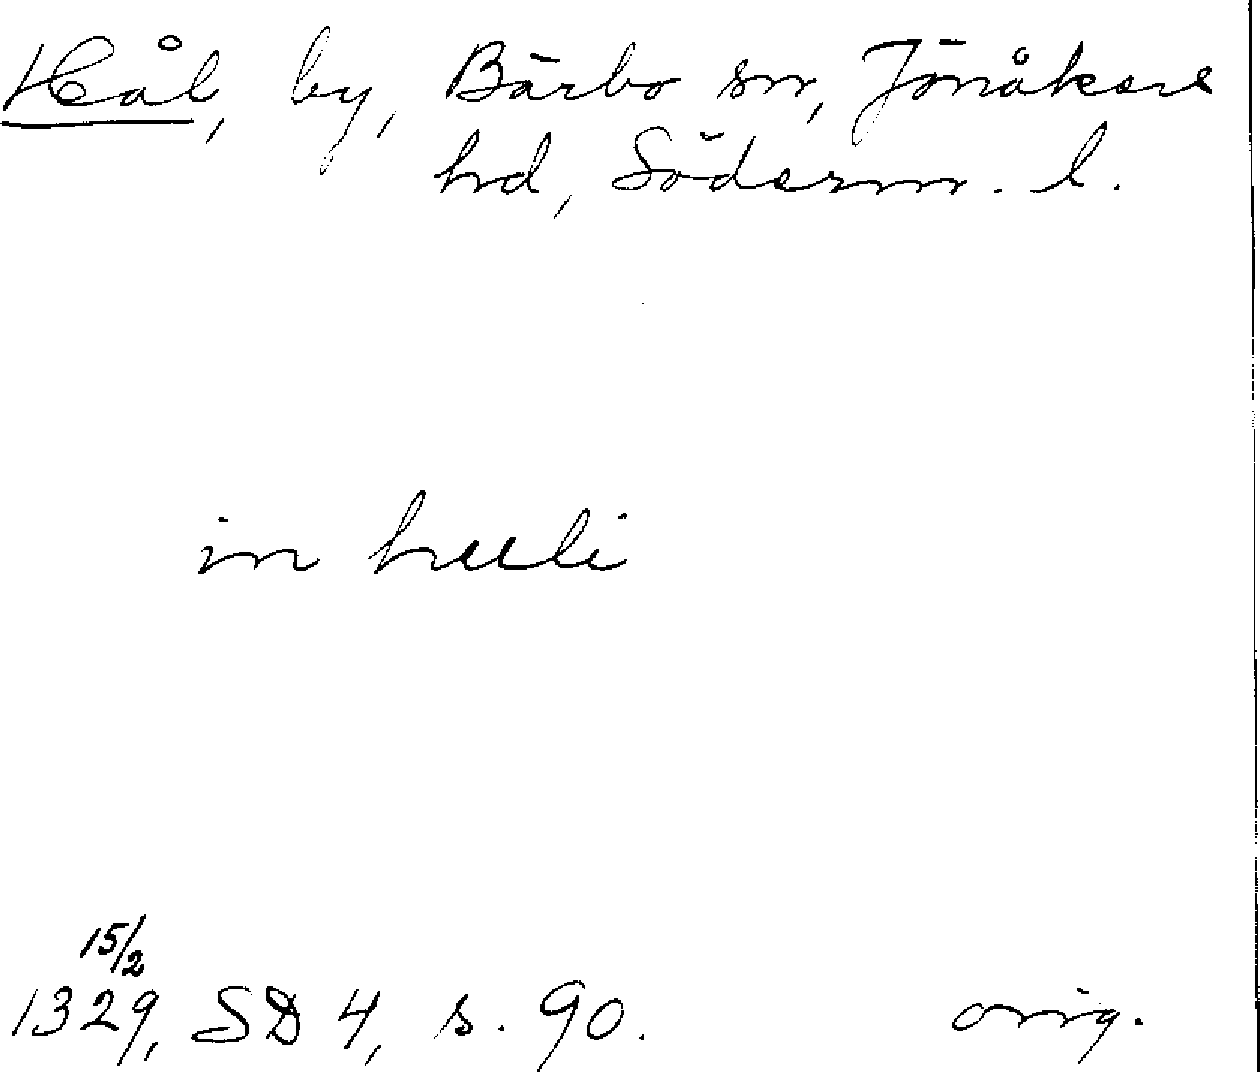 Hål, by, Bärbo sn, Jönåkers
hd, Söderm. l.
in huli
15/2
1329, SD 4, s. 90. orig.